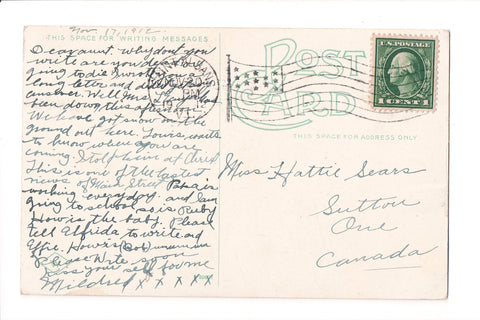 Nov. 17, 1912
THIS SPACE FOR WRITING MESSAGES
Dear aunt. why dont you
write are you dead or
going to die I wrote you a
long letter and
answer. Well Mrs.
been down this afternoon
We have got snow on the
ground out here. Yours wants
to know where you are
coming. I told him at
This is one of the latest
news of Main Street Papa is
working everyday and I am
going to school so is Ruby
How is the baby. Please
tell Elfrida to write and
Effie. How is Bob
Please Write soon
kiss your self for me
Mildred x x x x x
POST
CARD
THIS SPACE FOR ADDRESS ONLY
U.S. POSTAGE
1 CENT 1
Miss Hattie Sears
Sutton
Que
Canada